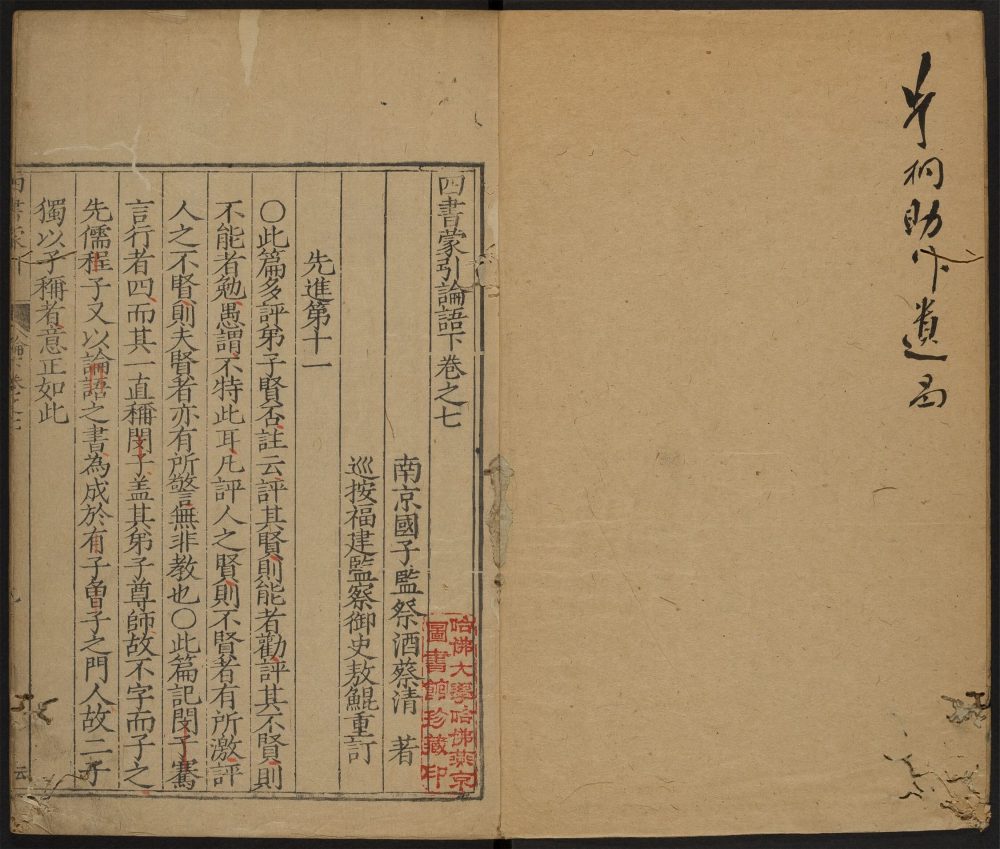 助
遺
四書蒙引論語下卷之七
南京國子監祭酒蔡清 著
巡按福建監察御史敖鯤重訂
哈佛大學哈佛燕京
圖書館珍藏印
先進第十一
〇此篇多評弟子賢否註云評其賢則能者勸評其不賢則
不能者勉愚謂不特此耳凡評人之賢則不賢者有所激評
人之不賢則夫賢者亦有所警言無非教也〇此篇記閔子騫
言行者四而其一直稱閔子盖其弟子尊師故不字而子之
先儒程子又以論語之書為成於有子曾子之門人故二子
獨以子稱者意正如此